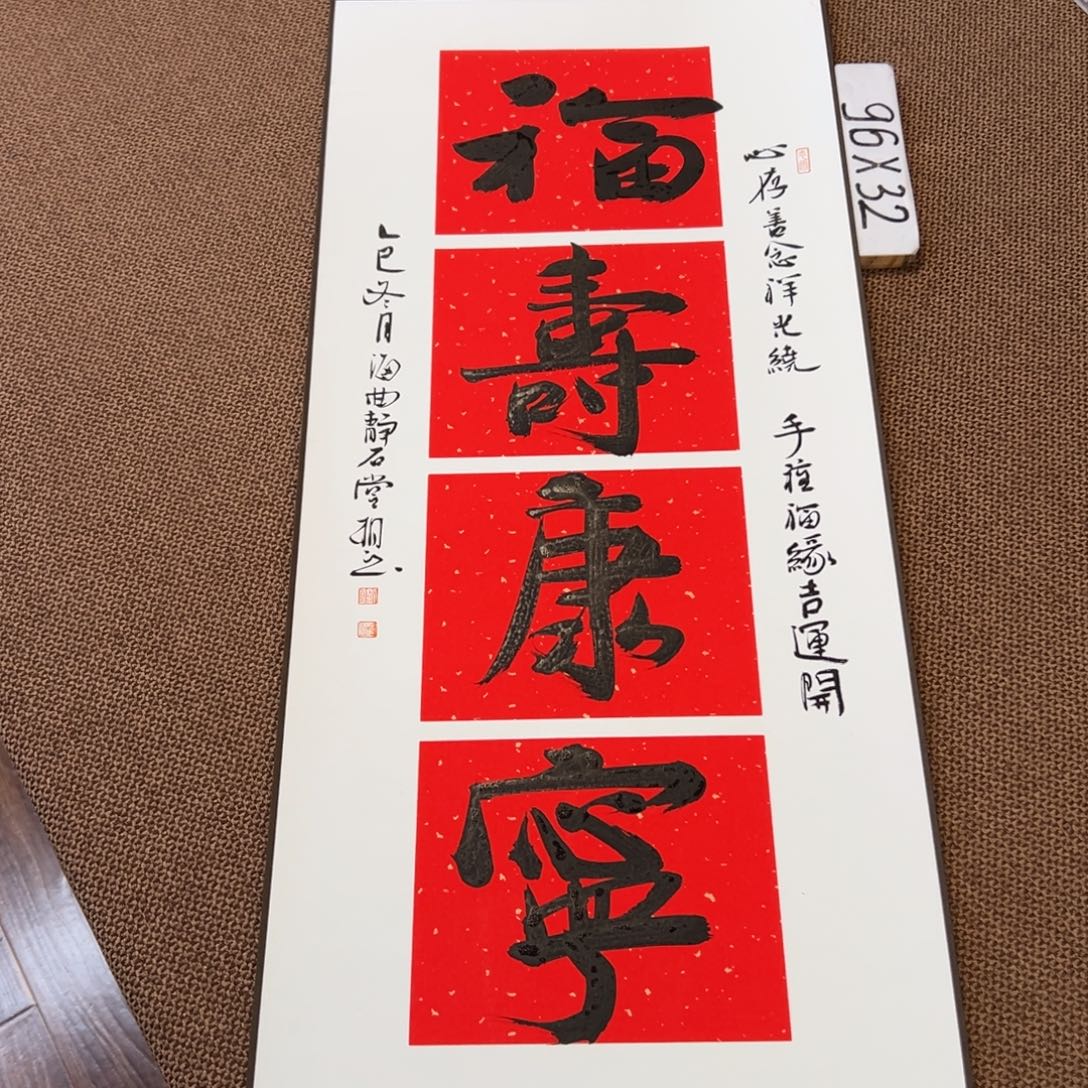 福
壽
康
寧
心存善念祥光繞 手種福緣吉運開
乙巳冬月海曲靜石堂
96X32